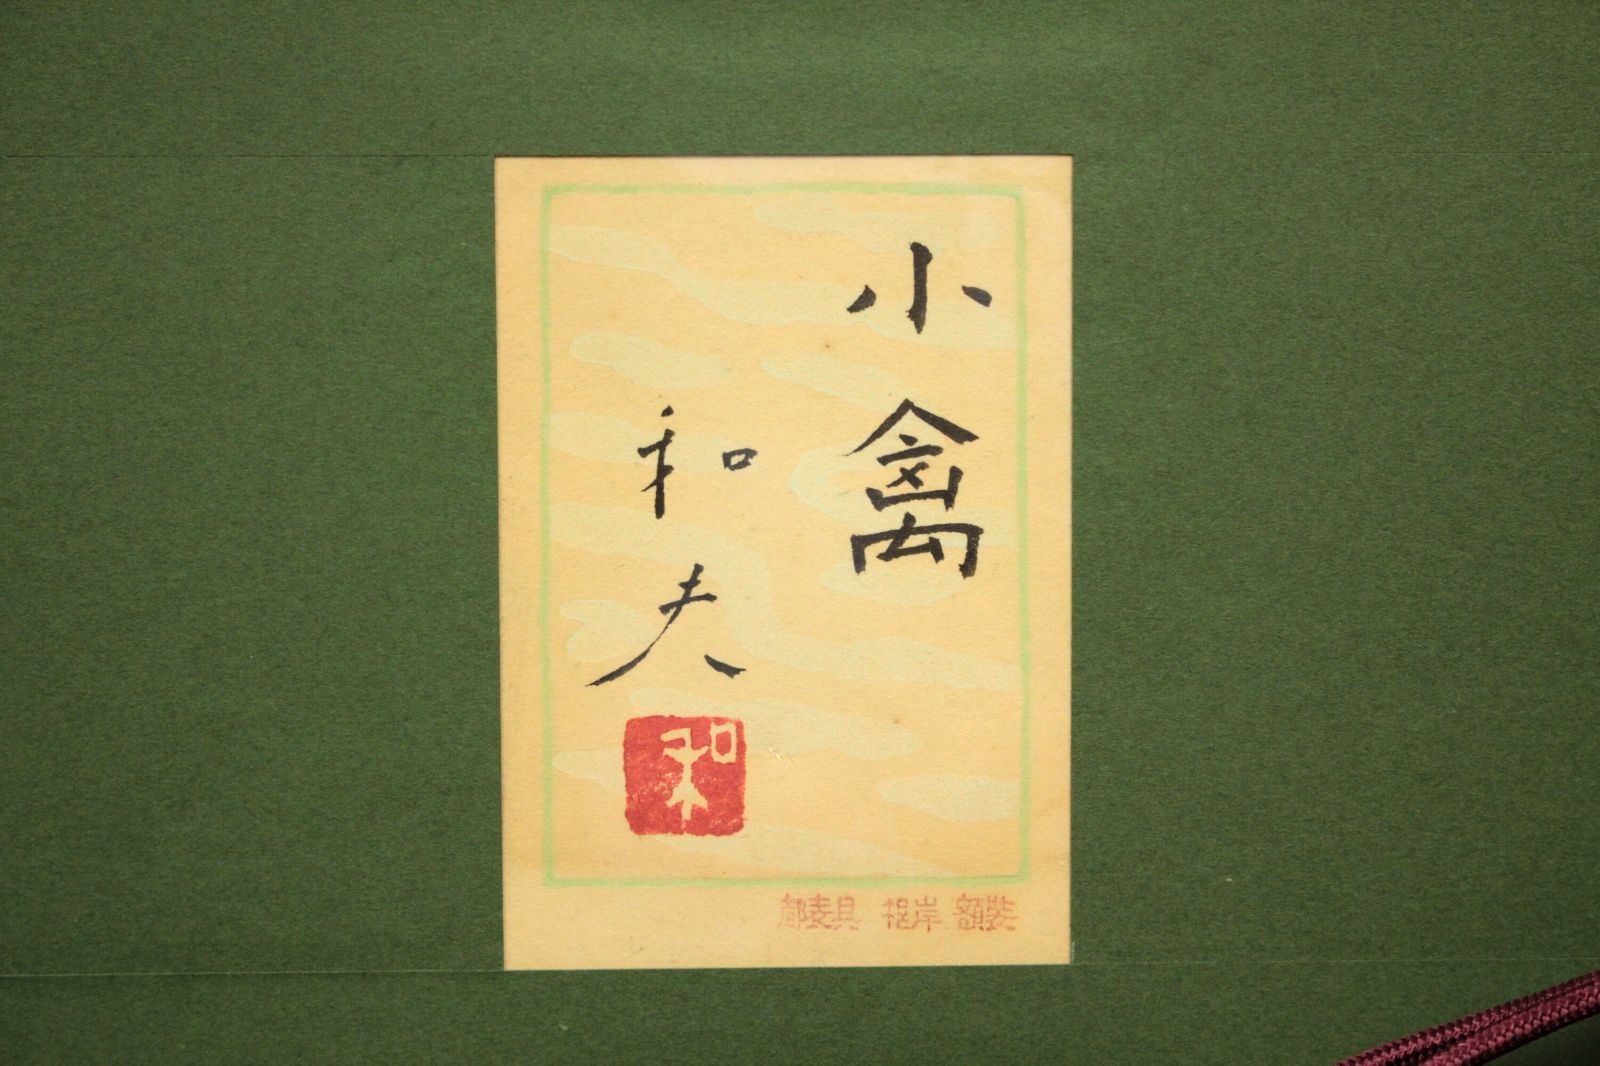 小禽
和夫
和
都表具 根岸 額装